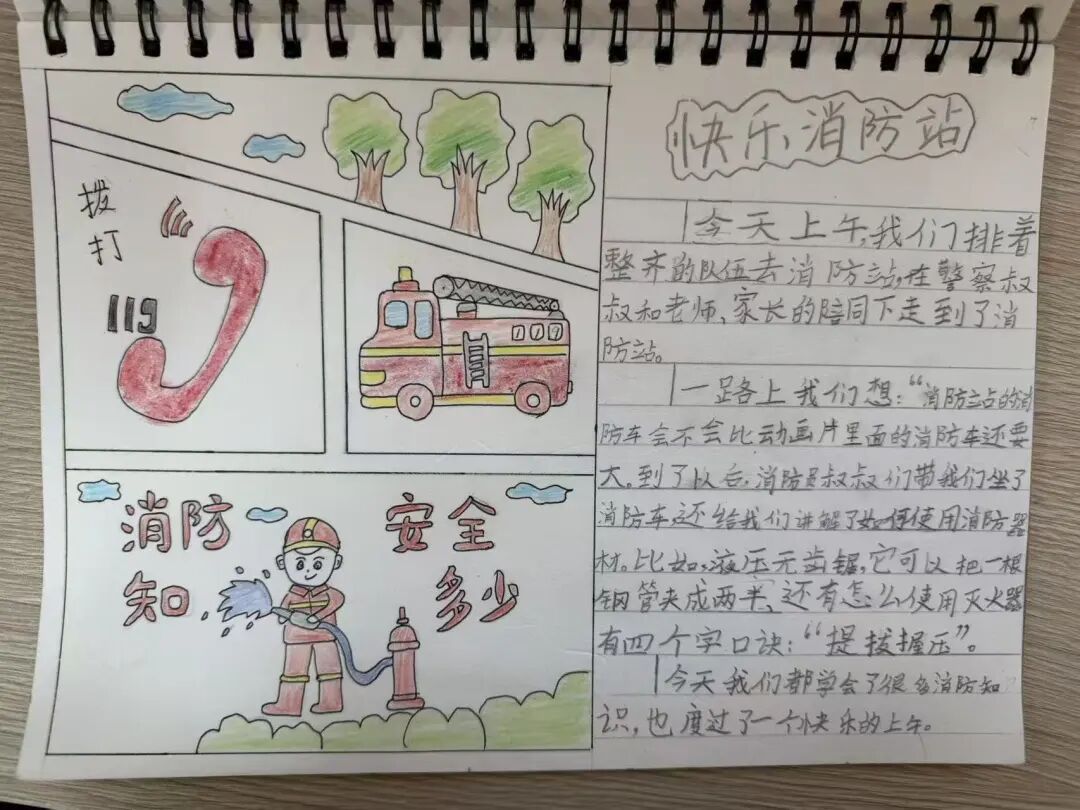 拨
打
119
119
消防 安全
知 多少
快乐消防站
今天上午,我们排着
整齐的队伍去消防站,在警察叔
叔和老师、家长的陪同下走到了消
防站。
一路上我们想:“消防站的消
防车会不会比动画片里面的消防车还要
大。到了以后,消防员叔叔们带我们坐了
消防车还给我们讲解了如何使用消防器
材。比如,液压无齿锯,它可以把一根
钢管夹成两半、还有怎么使用灭火器
有四个字口诀:“提拔握压”。
今天我们都学会了很多消防知
识,也度过了一个快乐的上午。